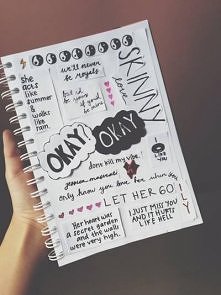 we'll never
be royals
she
acts
like
summer
& walks
like
rain.
SKINNY
love
OKAY?
OKAY
dont kill my vibe!
I
LIKE
YOU
only know you love her when you
LET HER GO!
Her heart was
a secret garden
and the walls
were very high.
I JUST MISS YOU
AND IT HURTS
LIKE HELL